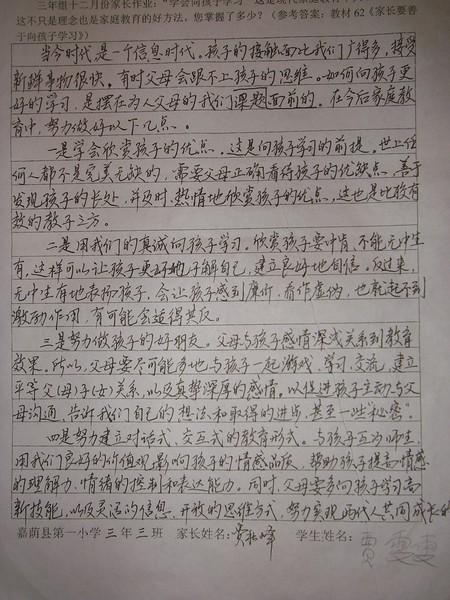 三年组十二月份家长作业："学会向孩子学习"
这不只是理念也是家庭教育的好方法，您掌握了多少？（参考答案：教材62《家长要善
于向孩子学习》）
当今时代是一个信息时代。孩子的接触面比我们广得多，接受
新鲜事物很快。有时父母会跟不上孩子的思维。如何向孩子更
好的学习，是摆在为人父母的我们课题面前的。在今后家庭教
育中，努力做好以下几点。
一是学会欣赏孩子的优点。这是向孩子学习的前提。世上任
何人都不是完美无缺的，需要父母正确看待孩子的优缺点，善于
发现孩子的长处，并及时、热情地欣赏孩子的优点，这也是比较有
效的教子之方。
二是用我们的真诚向孩子学习。欣赏孩子要中肯，不能无中生
有，这样可以让孩子更好地了解自己，建立良好地自信。反过来，
无中生有地表扬孩子，会让孩子感到厌倦，看作虚伪，也就起不到
激励作用，有可能会适得其反。
三是努力做孩子的好朋友。父母与孩子感情深浅关系到教育
效果。所以，父母要尽可能多地与孩子一起游戏、学习、交流，建立
平等父(母)子(女)关系，以及真挚深厚的感情。以促进孩子主动与父
母沟通，告诉我们自己的想法和取得的进步，甚至一些"秘密"。
四是努力建立对话式、交互式的教育形式。与孩子互为师生，
用我们良好的价值观影响孩子的情感品质，帮助孩子提高情感
的理解力、情绪的控制和表达能力。同时，父母要多向孩子学习高
新技能，以及灵活的信息、开放的思维方式，努力实现两代人共同成长的
嘉荫县第一小学 三 年 三 班 家长姓名： 学生姓名：贾雯雯